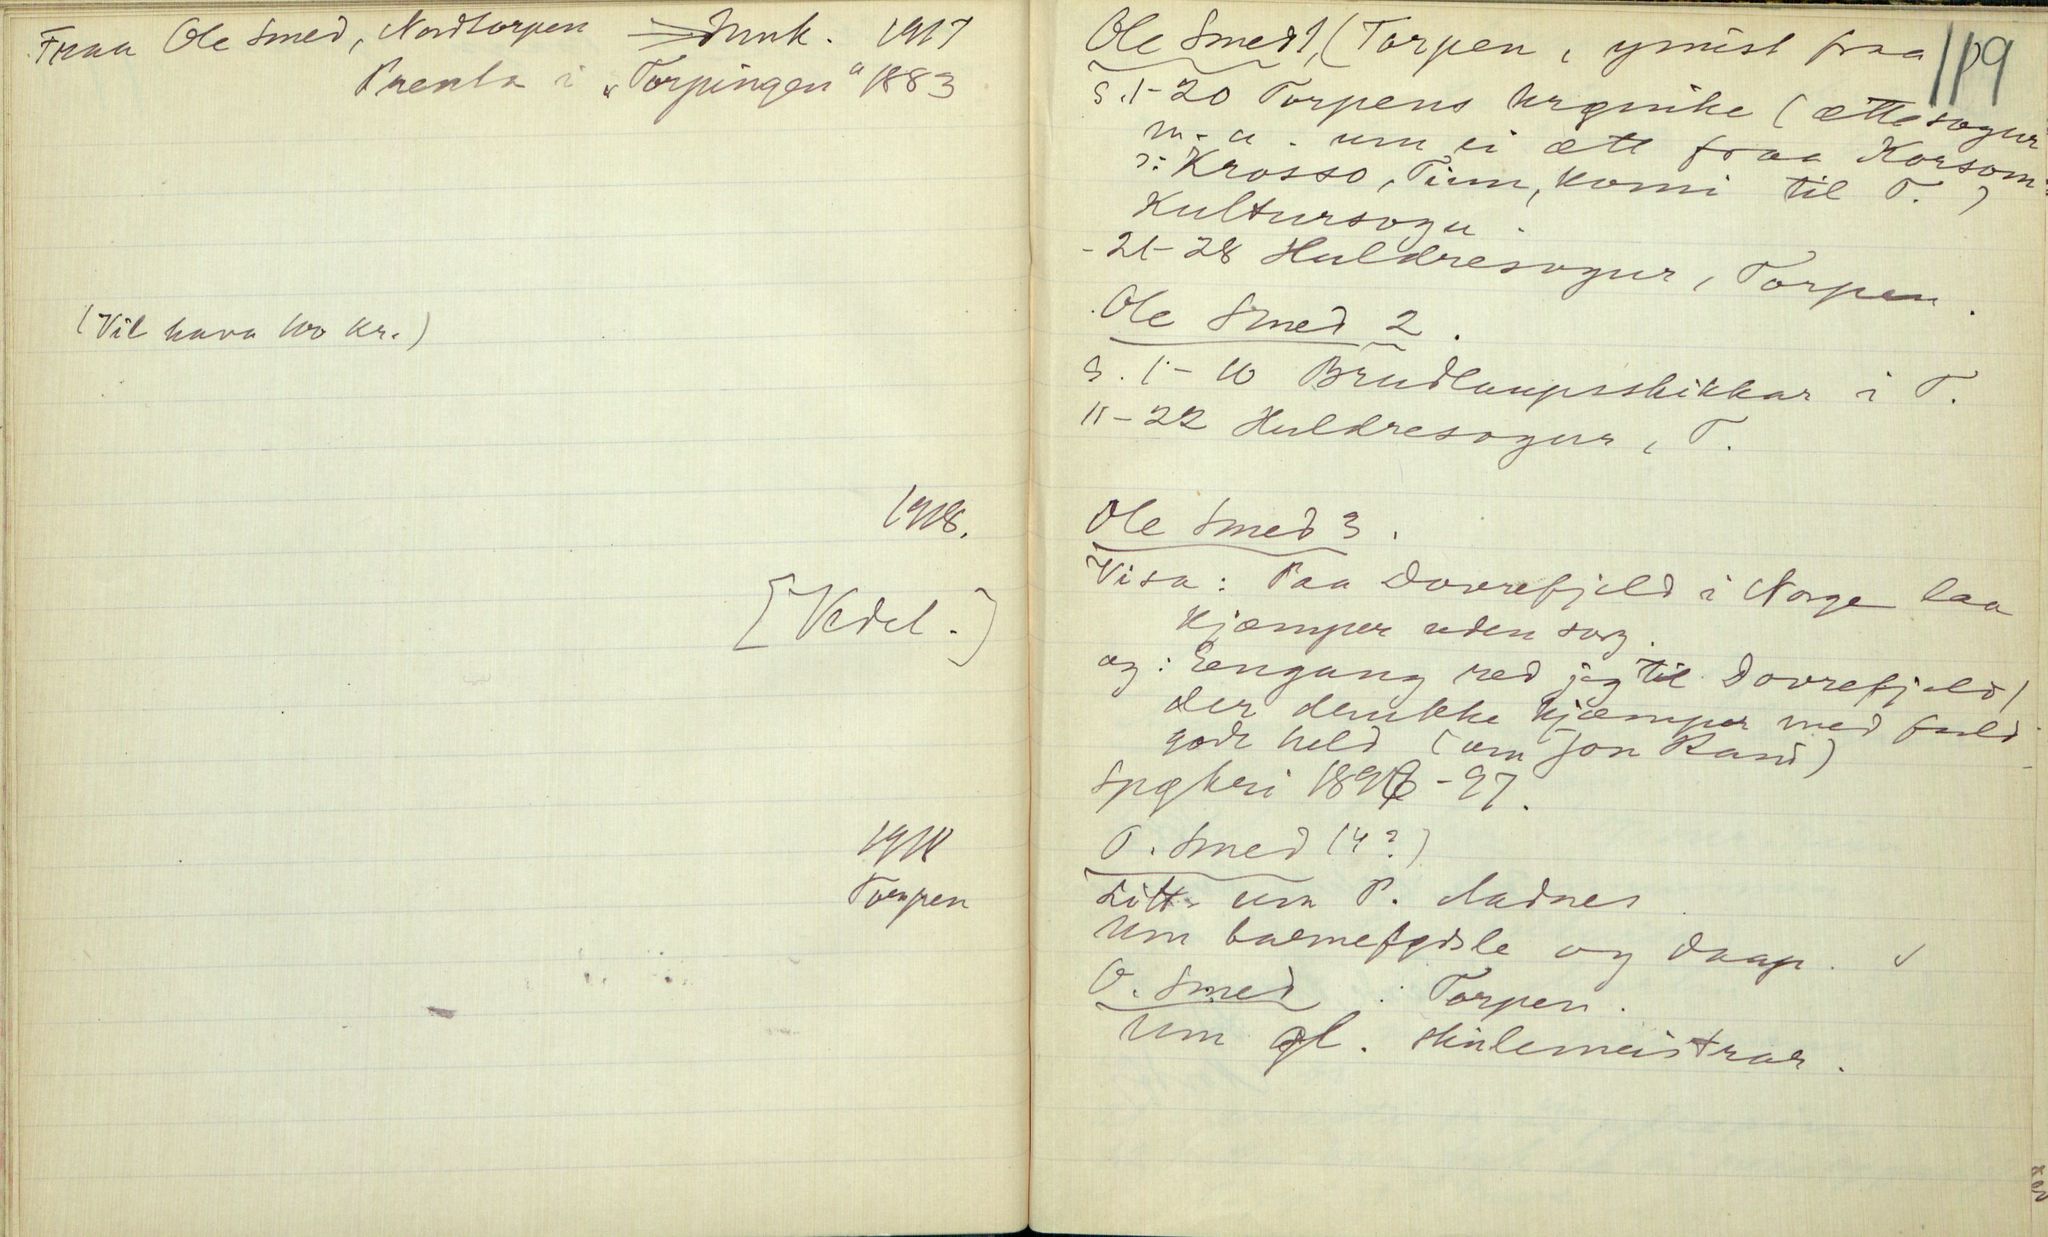 Fraa Ole Smed, Nordtorpen 1917
Prenta i "Torpingen" 1883
(Vil hava 100 kr.)
1918.
[Vedel.]
1918
Torpen
109
Ole Smed 1, (Torpen, ymist fraa
s. 1-20 Torpens krønike (ættesogur
m. a. um ei ætt fraa Korsom
ɔ: Krosso, Tinn, komi til T.)
Kultursogu.
- 21-28 Huldresogur, Torpen.
Ole Smed 2.
S. 1-10 Brudlaupsskikkar i T.
11-22 Huldresogur, T.
Ole Smed 3.
Visa: Paa Dovrefjeld i Norge laa
Kjæmper uden sorg.
og: Eengang red jeg til Dovrefjeld /
der drukke Kjæmper med
gode held (um Jon Rand)
Spøkeri 1896-97.
O. Smed (4?)
Litt um P. Aadnes
Um barnefødsle og daap.
O. Smed: Torpen.
Um gl. skulemeistrar.